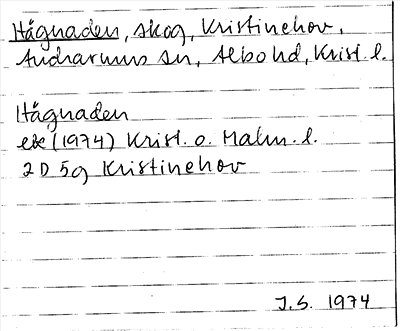 Hågnaden, skog, Kristinehov,
Andrarums sn, Albo hd, Krist. l.
Hågnaden
ek (1974) Krist. o. Malm. l.
2 D 5g Kristinehov
J.S. 1974